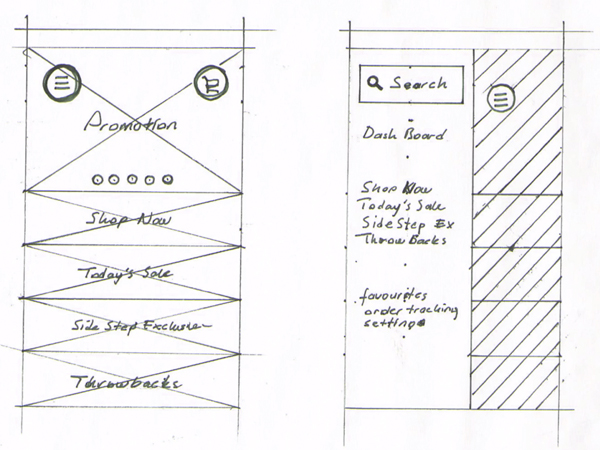 Promotion
Shop Now
Today's Sale
Side Step Exclusive
Throwbacks
Search
Dash Board
Shop Now
Today's Sale
Side Step Ex
ThrowBacks
favourites
order tracking
settings